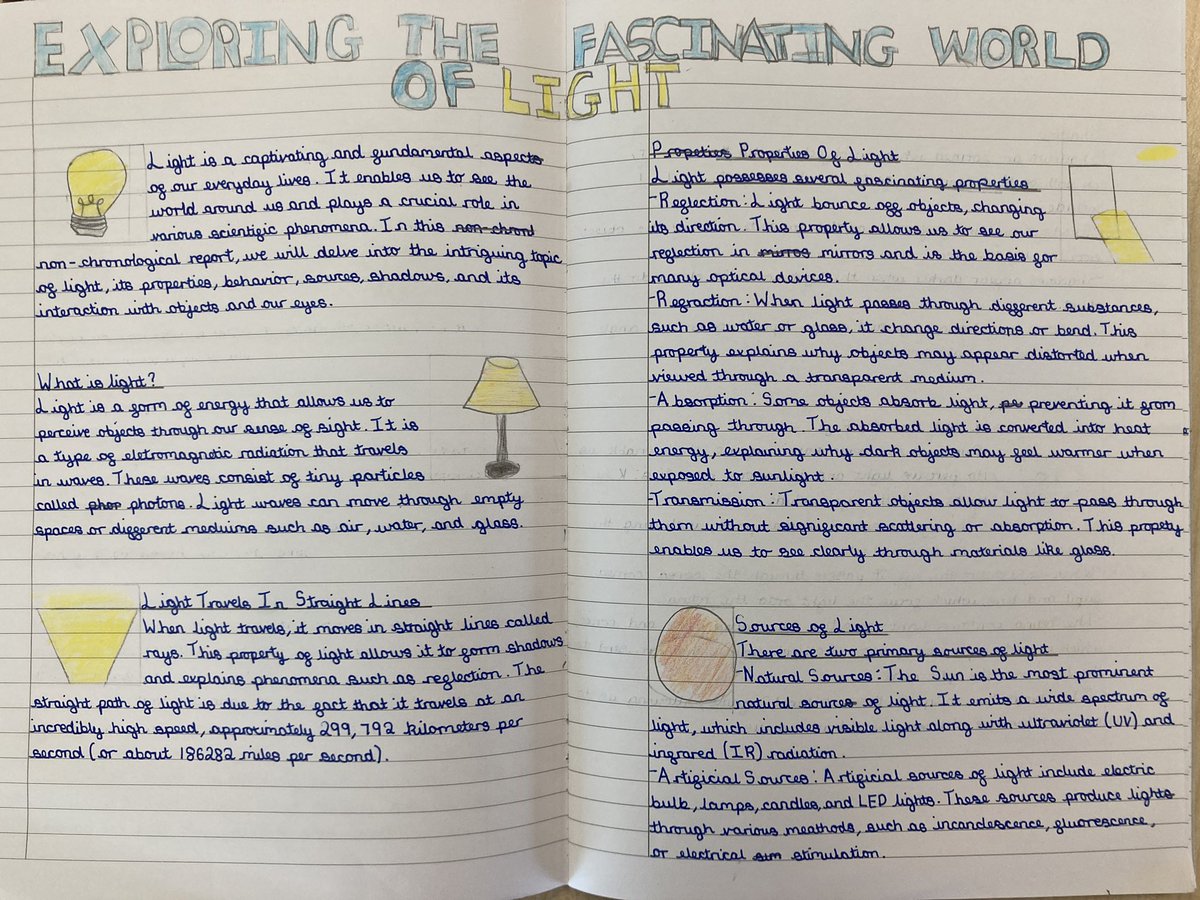 EXPLORING THE FASCINATING WORLD
OF LIGHT
Light is a captivating and fundamental aspects
of our everyday lives. It enables us to see the
world around us and plays a crucial role in
various scientific phenomena. In this non-chron
non-chronological report, we will delve into the intriguing topic
of light, its properties, behavior, sources, shadows, and its
interaction with objects and our eyes.
What is light?
Light is a form of energy that allows us to
perceive objects through our sense of sight. It is
a type of eletromagnetic radiation that travels
in waves. These waves consist of tiny particles
called phor photons. Light waves can move through empty
spaces or different mediuims such as air, water, and glass.
Light Travels In Straight Lines
When light travels, it moves in straight lines called
rays. This property of light allows it to form shadows
and explains phenomena such as reflection. The
straight path of light is due to the fact that it travels at an
incredibly high speed, approximately 299,792 kilometers per
second (or about 186282 miles per second).
Propeties Properties Of Light
Light possesses several fascinating properties
-Reflection: Light bounce off objects, changing
its direction. This property allows us to see our
reflection in mirros mirrors and is the basis for
many optical devices.
-Refraction: When light passes through different substances,
such as water or glass, it change directions or bend. This
property explains why objects may appear distorted when
viewed through a transparent medium.
-Absorption: Some objects absorb light, pe preventing it from
passing through. The absorbed light is converted into heat
energy, explaining why dark objects may feel warmer when
exposed to sunlight.
-Transmission: Transparent objects allow light to pass through
them without significant scattering or absorption. This propety
enables us to see clearly through materials like glass.
Sources of Light
There are two primary sources of light
-Natural Sources: The Sun is the most prominent
natural sources of light. It emits a wide spectrum of
light, which includes visible light along with ultraviolet (UV) and
infrared (IR) radiation.
-Artificial Sources: Artificial sources of light include electric
bulb, lamps, candles, and LED lights. These sources produce lights
through various meathods, such as incandescence, fluorescence,
or electrical sim stimulation.